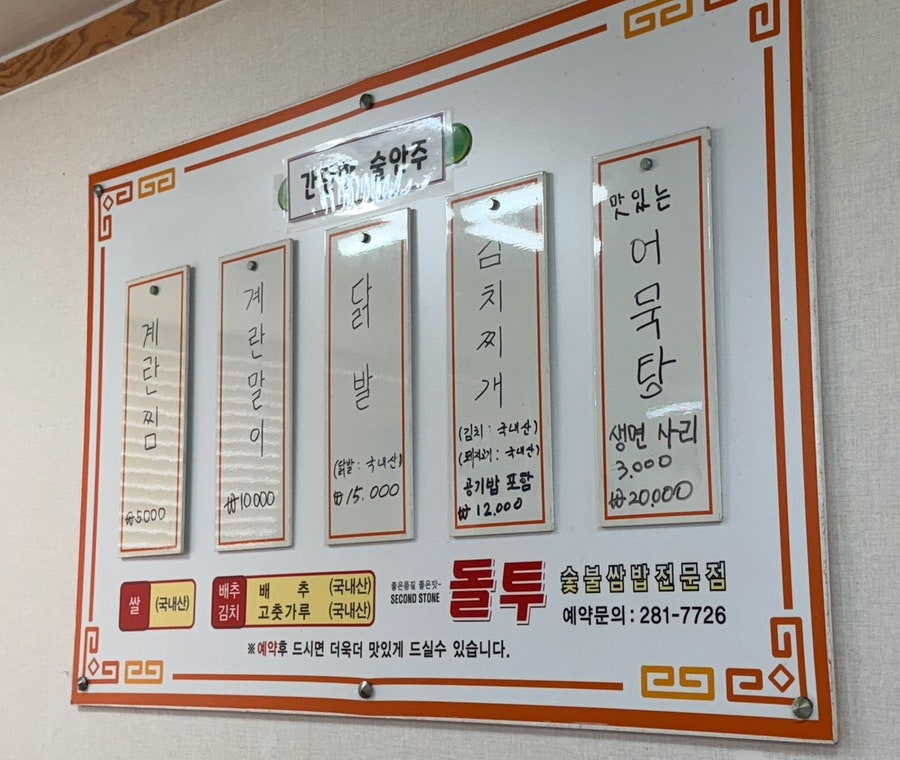 술안주
계란찜
₩5000
계란말이
₩10000
닭발
(닭발 : 국내산)
₩15.000
김치찌개
(김치 : 국내산)
(돼지고기 : 국내산)
공기밥 포함
₩12.000
맛있는
어묵탕
생면 사리
3.000
₩20.000
쌀 (국내산)
배추김치 배추 (국내산)
고춧가루 (국내산)
좋은품질 좋은맛~
SECOND STONE
돌투
숯불쌈밥전문점
예약문의 : 281-7726
※예약후 드시면 더욱더 맛있게 드실수 있습니다.